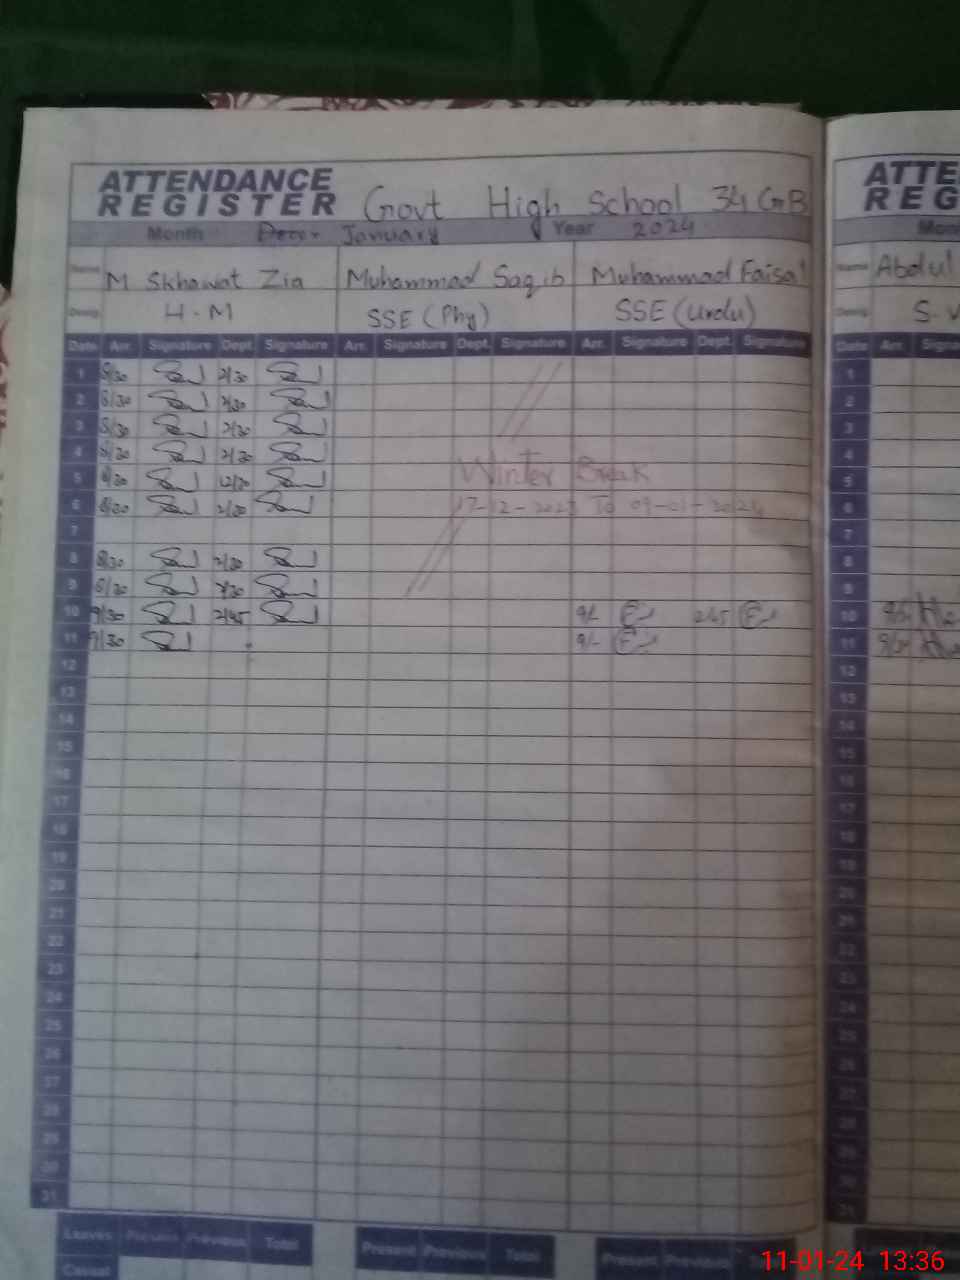 ATTENDANCE
REGISTER Govt High School 34 GB
Month January Year 2024
Name M Skhawat Zia Muhammad Saqib Muhammad Faisal
Desig. H-M SSE (Phy) SSE (Urdu)
Date Arr. Signature Dept. Signature Arr. Signature Dept. Signature Arr. Signature Dept. Signature
1 8/30 2/30
2 8/30 2/30
3 8/30 2/30
4 8/30 2/30
5 8/30 12/30 Winter Break
6 8/30 2/30 17-12-2023 To 09-01-2024
7
8 8/30 2/30
9 8/30 2/30
10 9/30 2/45 9/- 2/45
11 9/30 9/-
12
13
14
15
16
17
18
19
20
21
22
23
24
25
26
27
28
29
30
31
Leaves Present Previous Total Present Previous Total Present Previous
Casual
ATTE
REG
Mon
Name Abdul
Desig. S-V
Date Arr. Signa
1
2
3
4
5
6
7
8
9
10
11
12
13
14
15
16
17
18
19
20
21
22
23
24
25
26
27
28
29
30
31
11-01-24 13:36